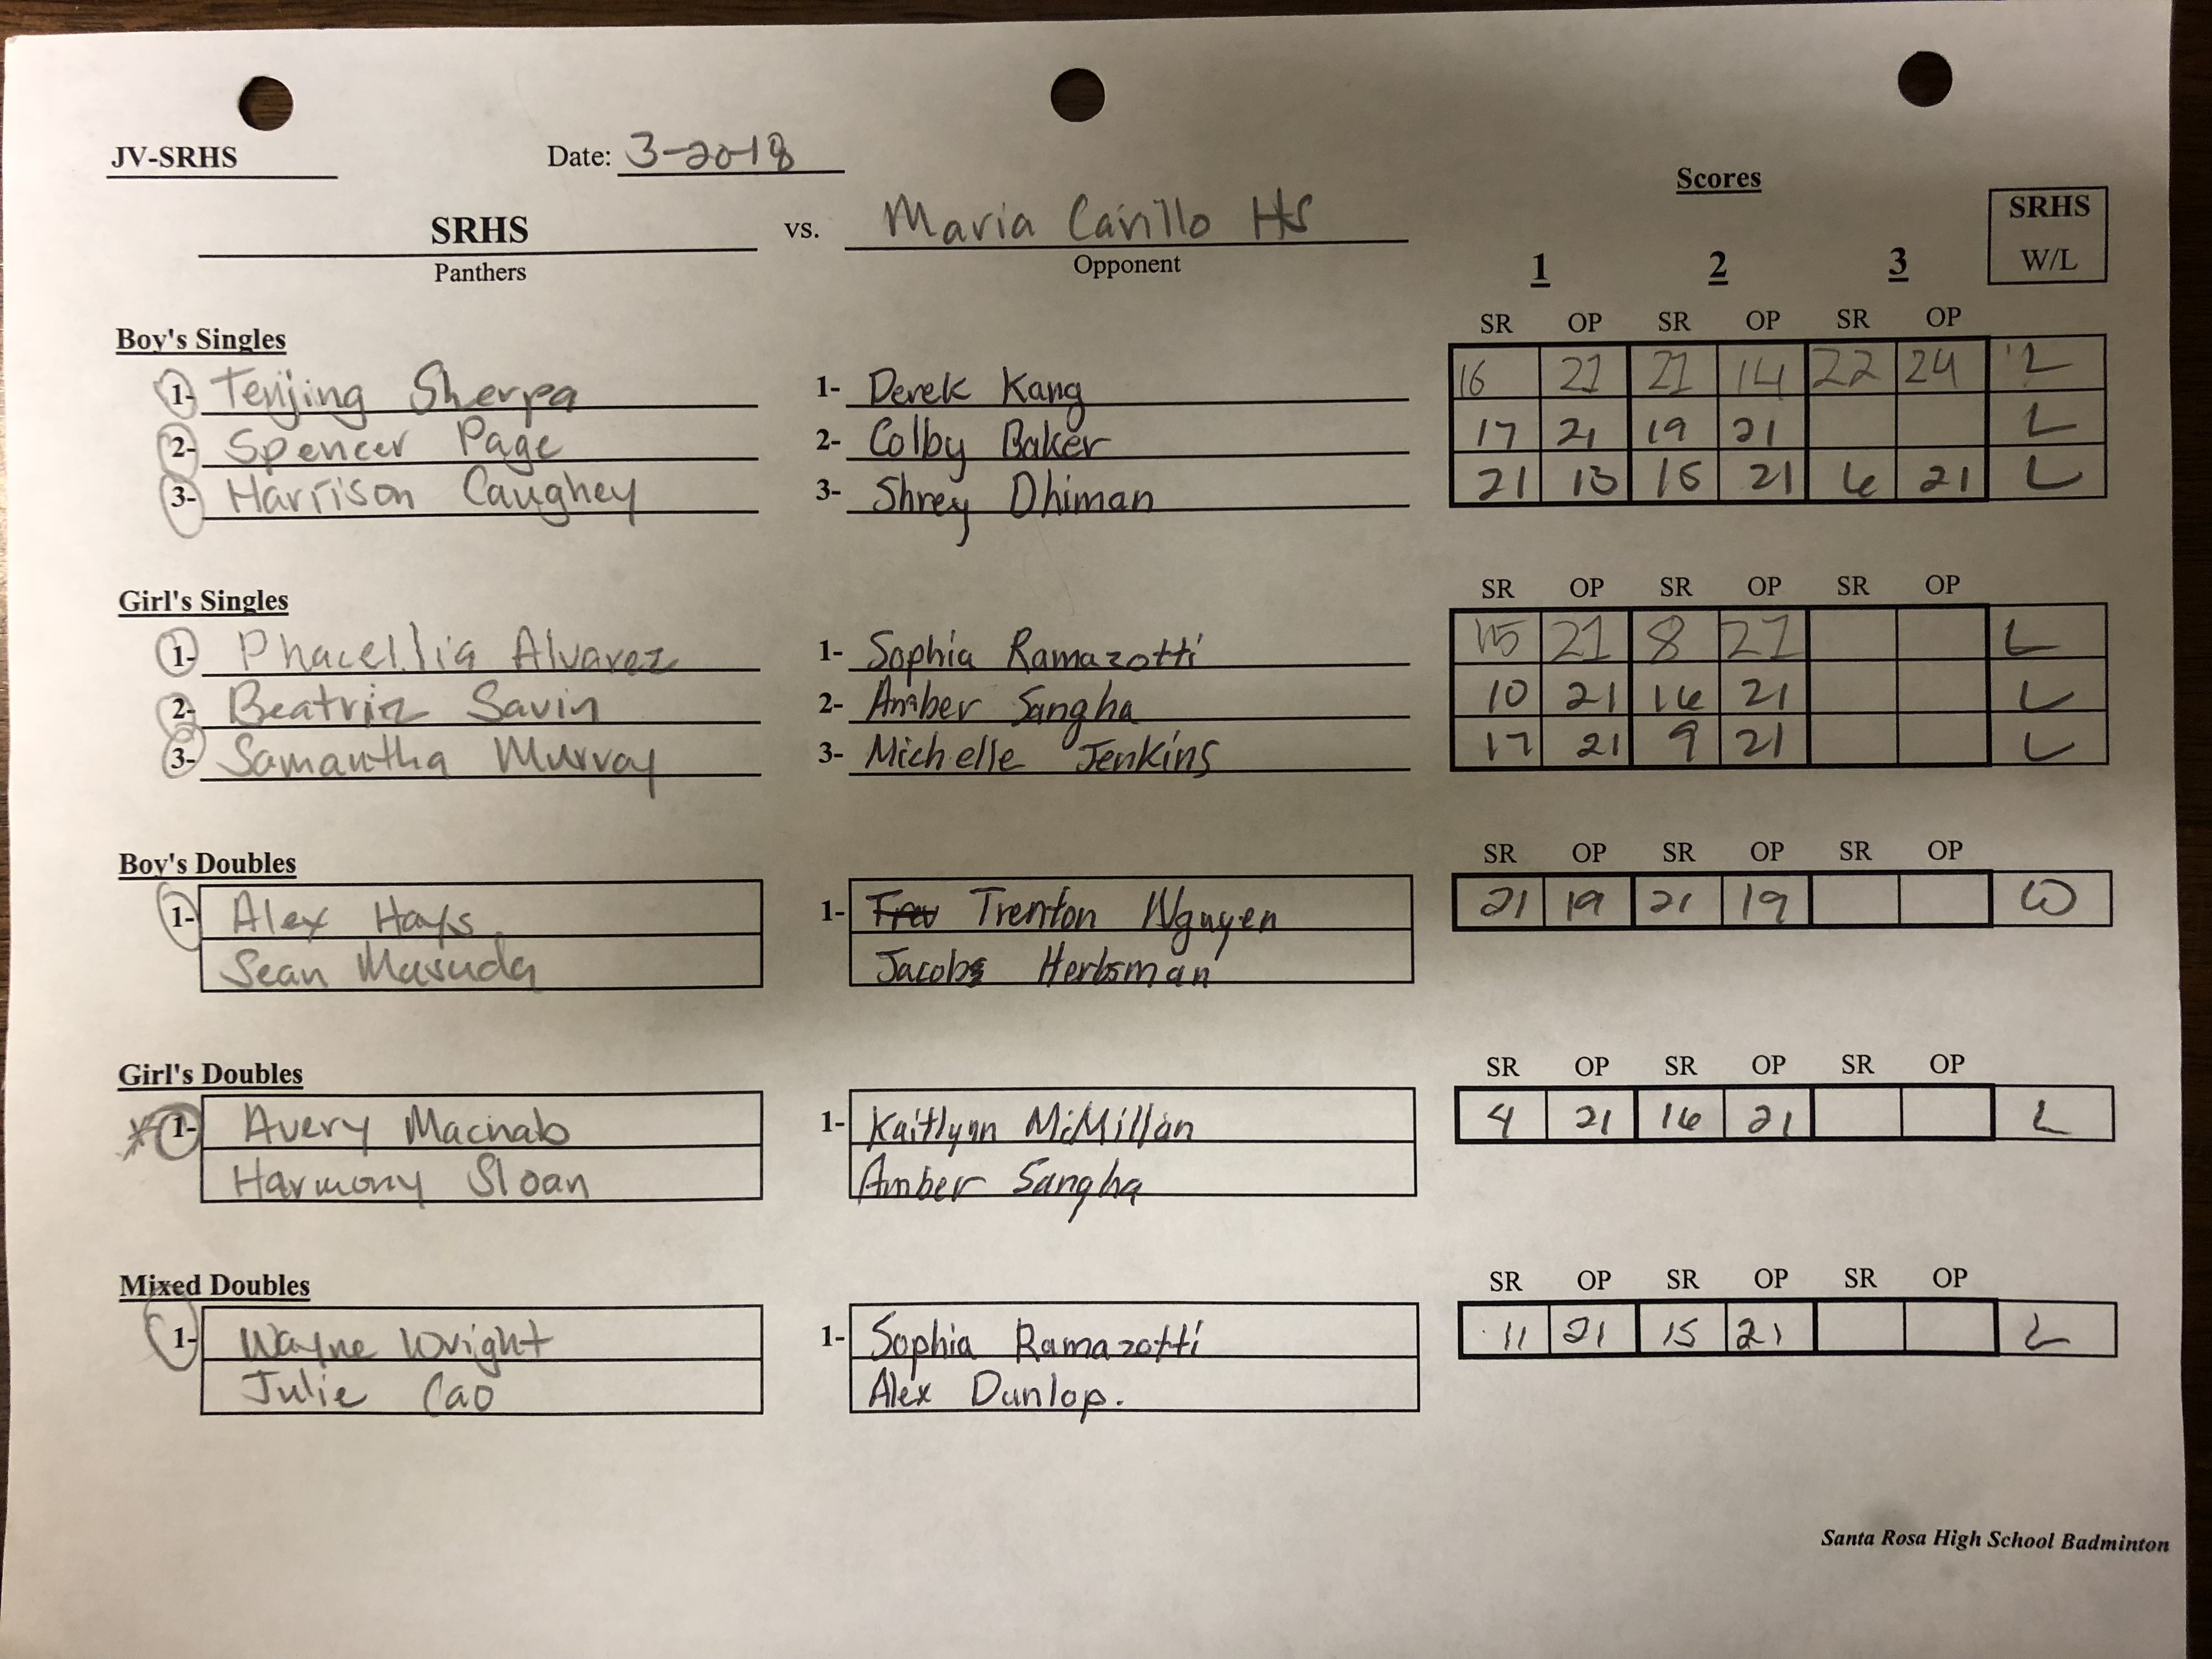 JV-SRHS Date: 3-20-18
Scores
SRHS vs. Maria Carillo HS SRHS
Panthers Opponent 1 2 3 W/L
Boy's Singles SR OP SR OP SR OP
1- Tenjing Sherpa 1- Derek Kang 16 21 21 14 22 24 L
2- Spencer Page 2- Colby Baker 17 21 19 21 L
3- Harrison Caughey 3- Shrey Dhiman 21 13 15 21 6 21 L
Girl's Singles SR OP SR OP SR OP
1- Phacellia Alvarez 1- Sophia Ramazotti 15 21 8 21 L
2- Beatriz Savin 2- Amber Sangha 10 21 16 21 L
3- Samantha Murray 3- Michelle Jenkins 17 21 9 21 L
Boy's Doubles SR OP SR OP SR OP
1- Alex Hays 1- Trenton Nguyen 21 19 21 19 W
Sean Masuda Jacob Herbsman
Girl's Doubles SR OP SR OP SR OP
1- Avery Macnab 1- Kaitlynn McMillan 4 21 16 21 L
Harmony Sloan Amber Sangha
Mixed Doubles SR OP SR OP SR OP
1- Wayne Wright 1- Sophia Ramazotti 11 21 15 21 L
Julie Cao Alex Dunlop.
Santa Rosa High School Badminton